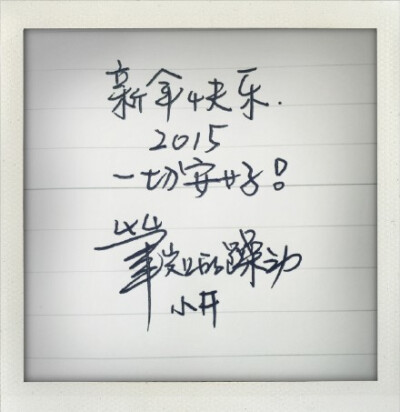 新年快乐.
2015
一切安好!
岁月的躁动
小开